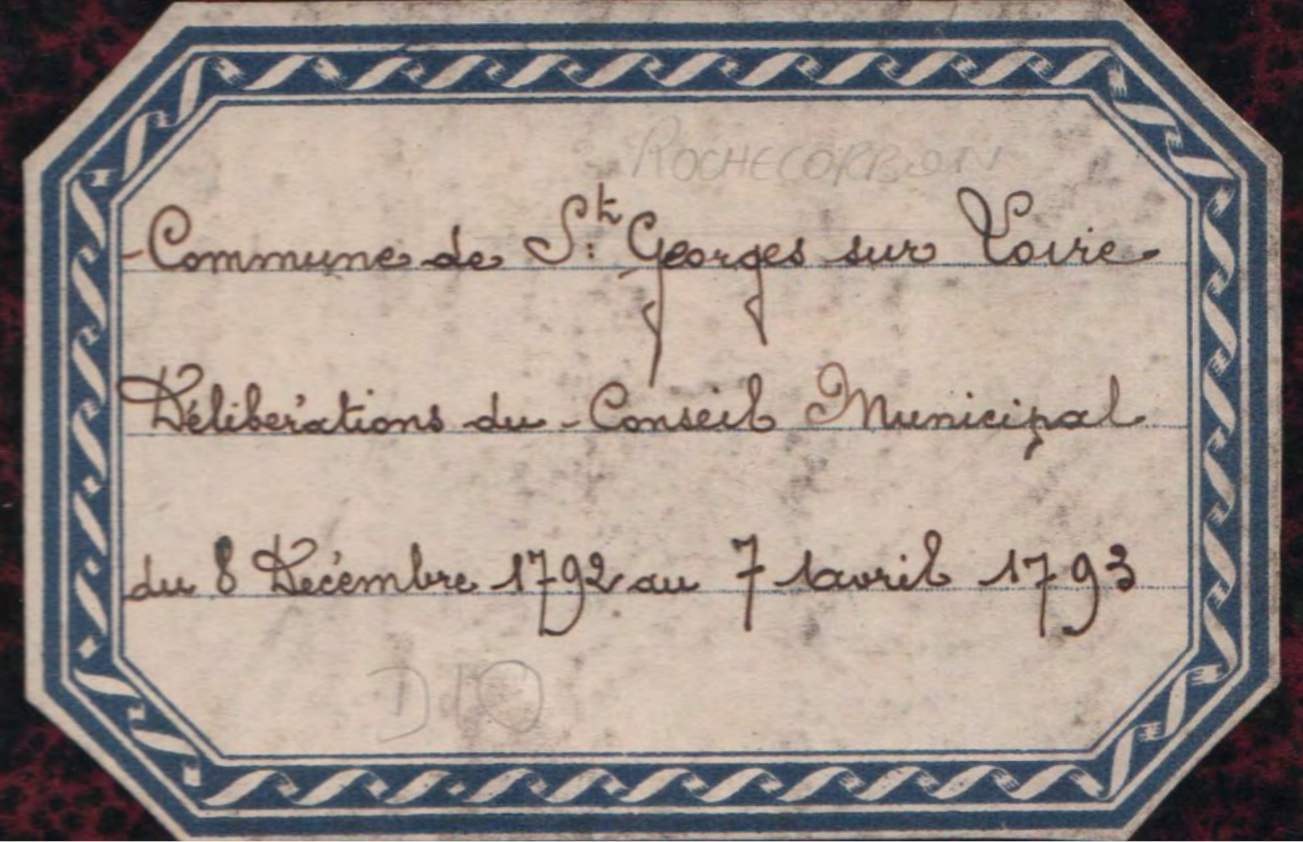 ROCHECORBON
Commune de St: Georges sur Loire
Délibérations du Conseil Municipal
du 8 Décembre 1792 au 7 Avril 1793